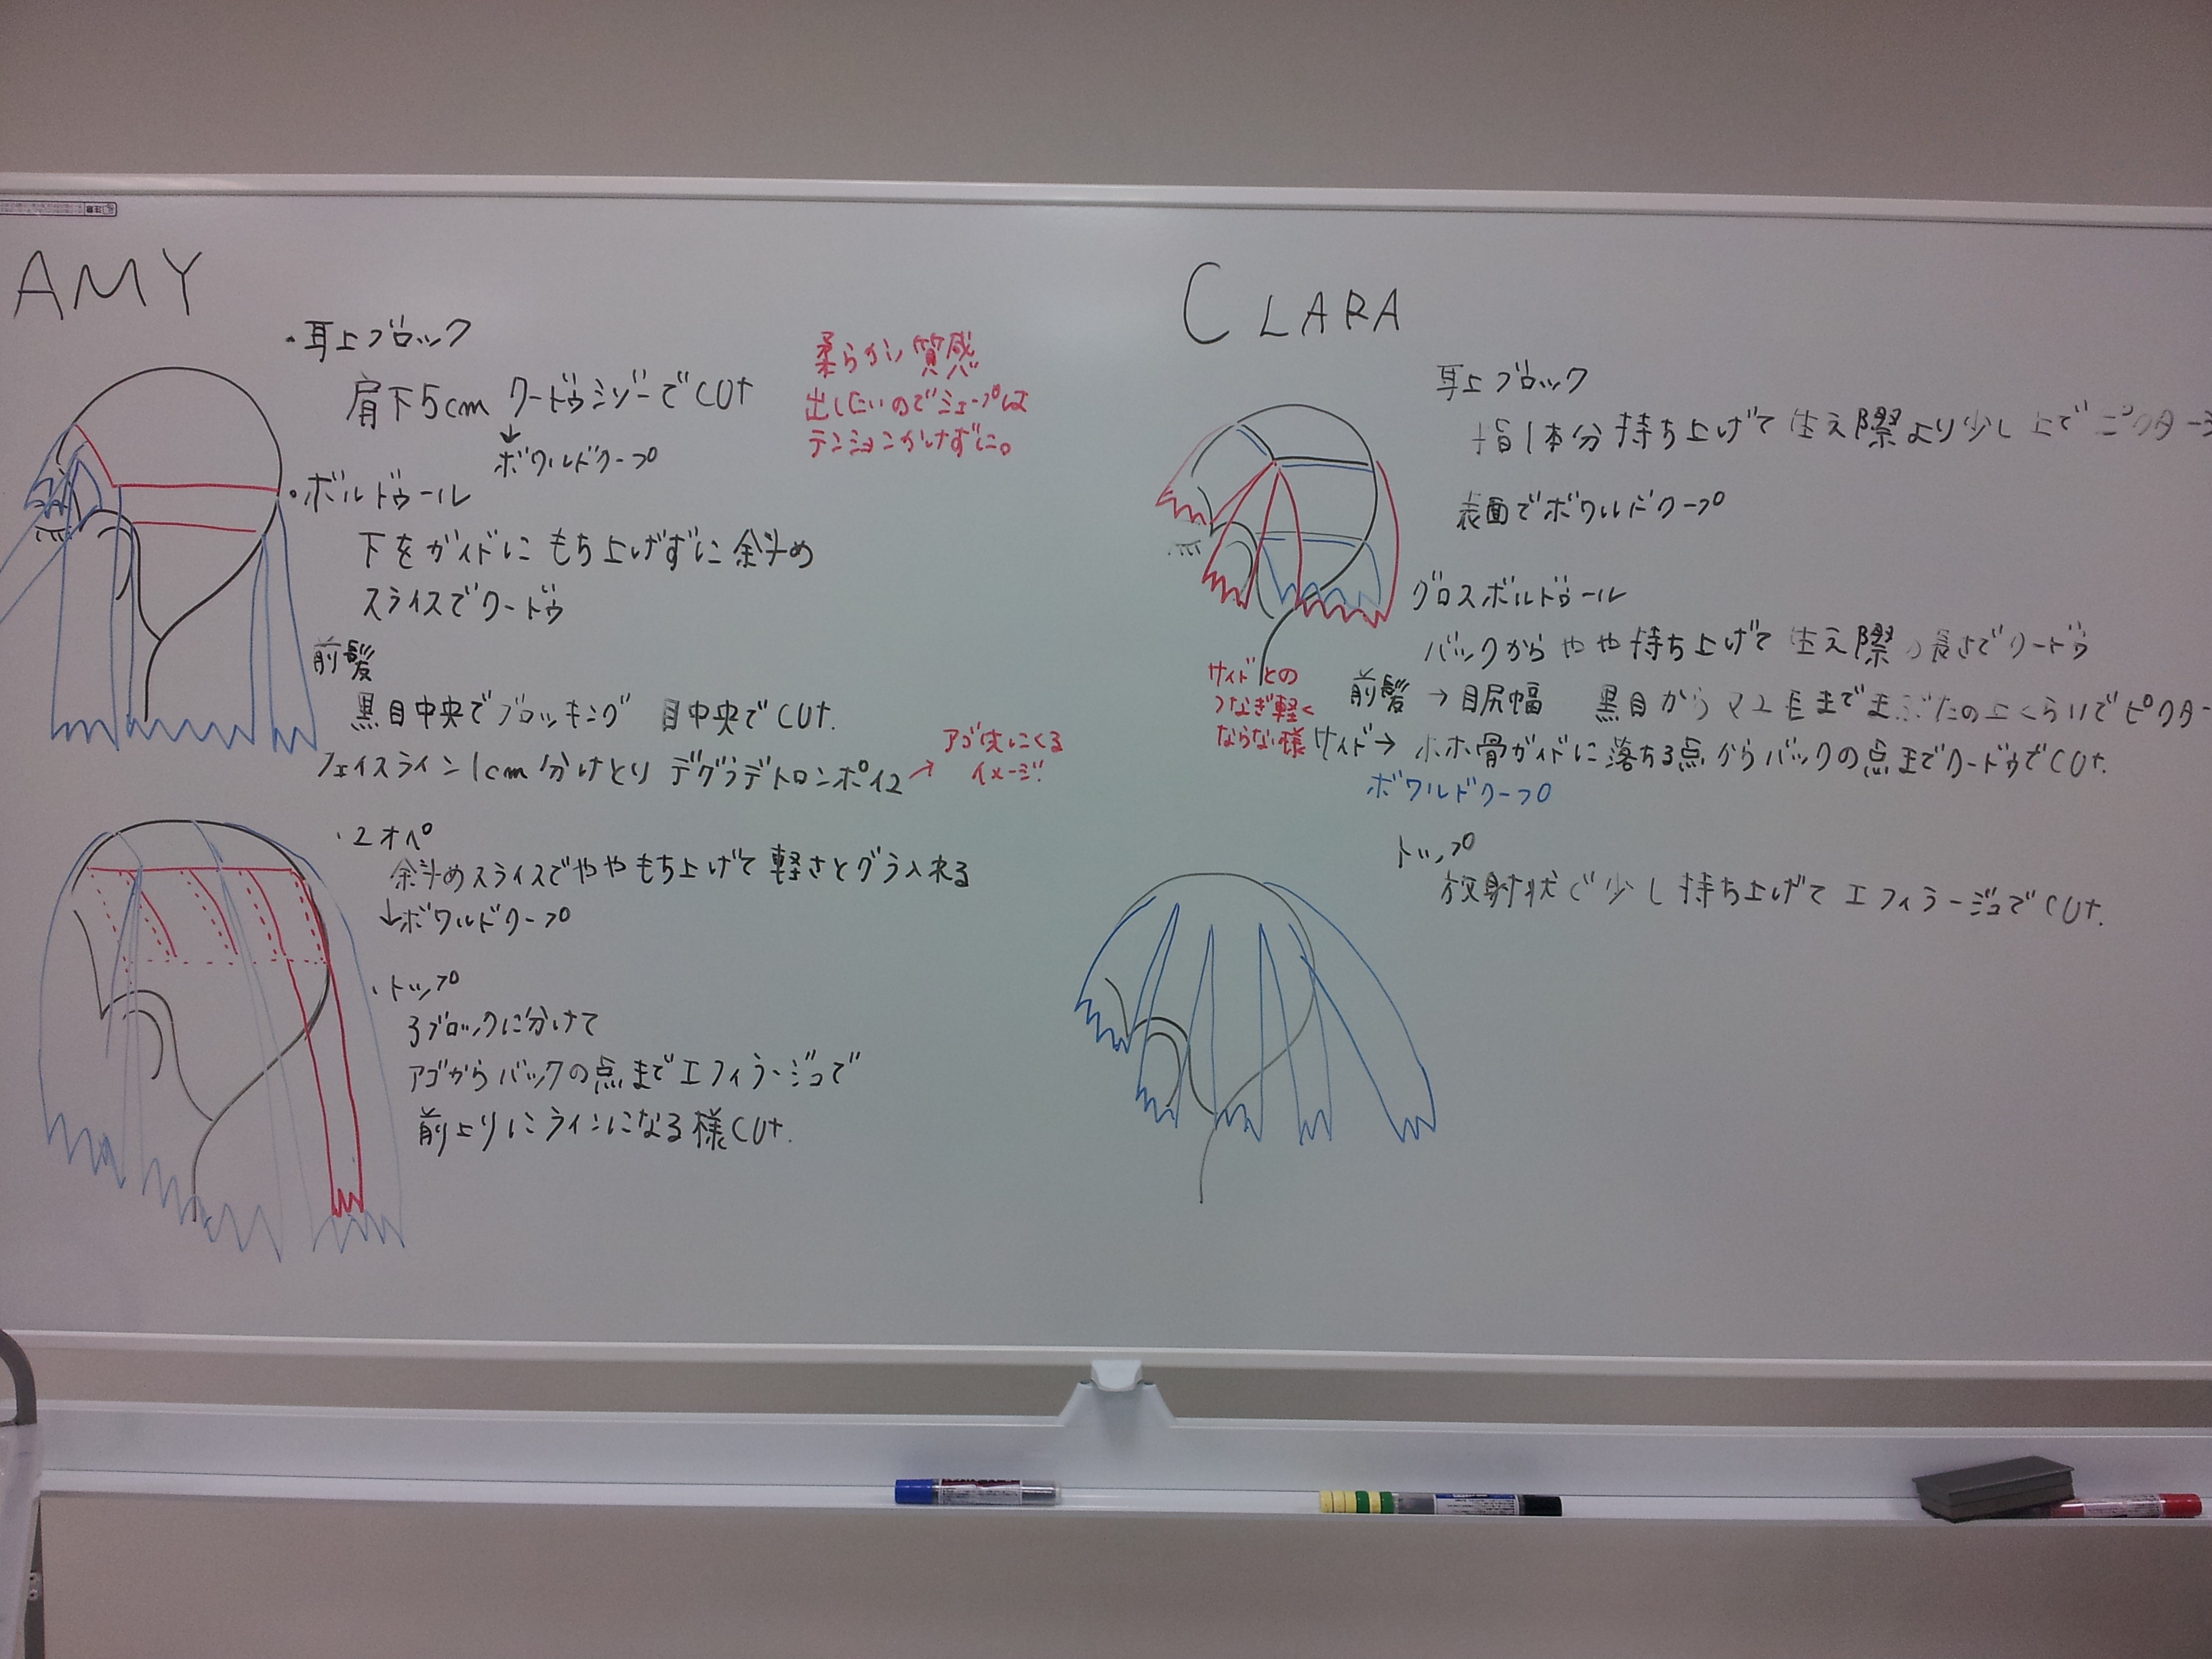 AMY
・耳上ブロック
肩下5cm クードゥシゾーでCUt
↓
ボワルドクープ
柔らかい質感
出したいのでシェープは
テンションかけずに。
・ボルドゥール
下をガイドにもち上げずに斜め
スライスでクードゥ
前髪
黒目中央でブロッキング 目中央でCUt.
フェイスライン1cm分けとり デグラデトロンポイユ
→ アゴ先にくる
イメージ!
・2オペ
斜めスライスでややもち上げて軽さとグラ入れる
↓ボワルドクープ
・トップ
3ブロックに分けて
アゴからバックの点までエフィラージュで
前上りにラインになる様CUt.
CLARA
耳上ブロック
指1本分持ち上げて生え際より少し上で
表面でボワルドクープ
グロスボルドゥール
バックからやや持ち上げて生え際の長さでクードゥ
サイドとの
つなぎ軽く
ならない様
前髪 → 目尻幅 黒目からマユ毛までまぶたの上くらいでピクター
サイド→ ホホ骨ガイドに落ちる点からバックの点までクードゥでCUt.
ボワルドクープ
トップ
放射状で少し持ち上げてエフィラージュでCUt.